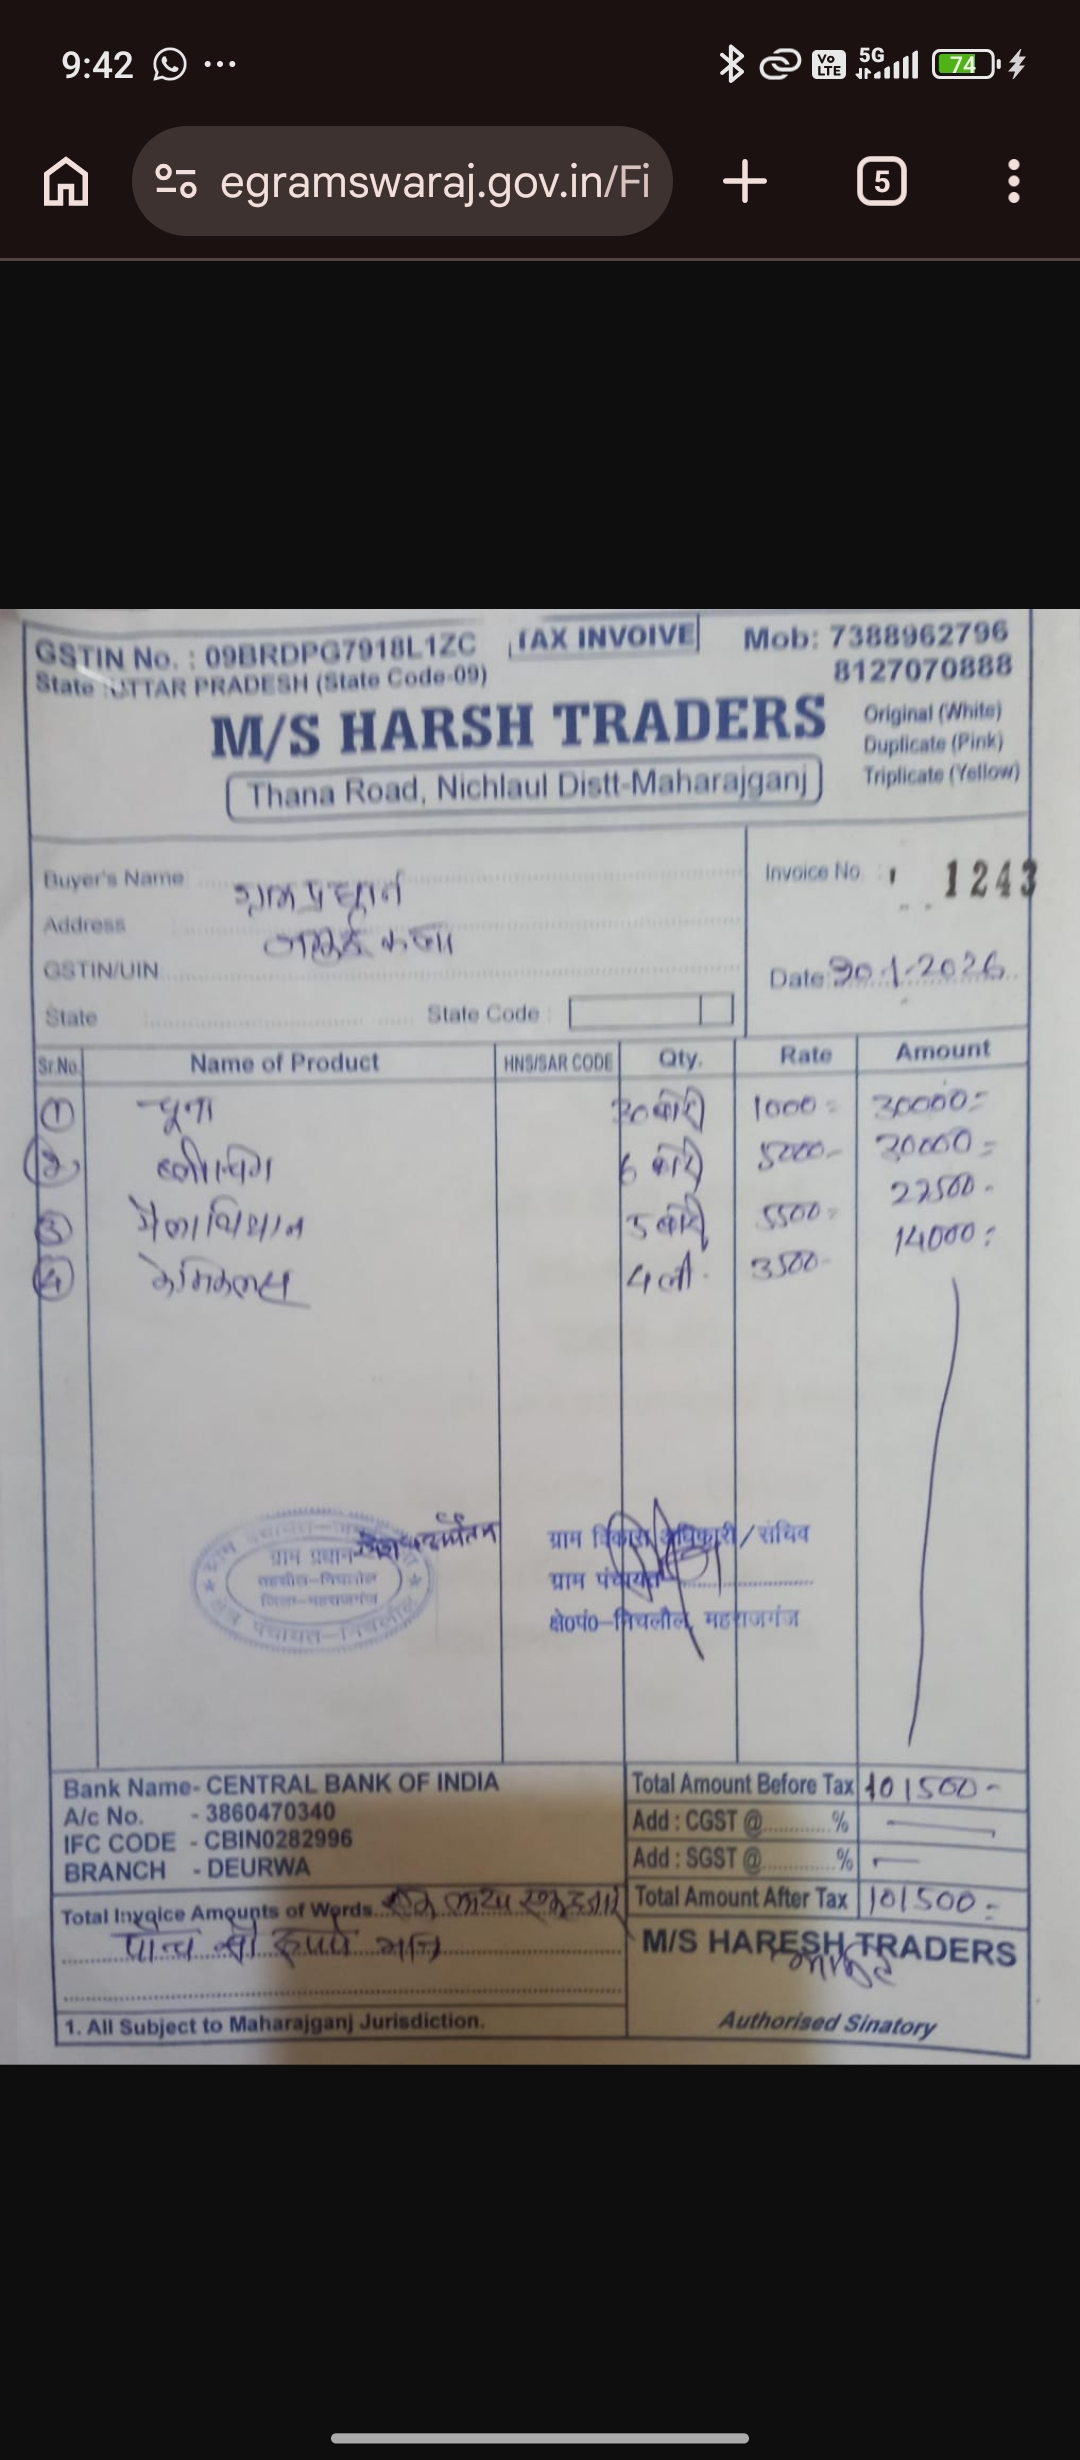 9:42
Vo LTE 5G 74
egramswaraj.gov.in/Fi
5
GSTIN No. : 09BRDPG7918L1ZC
TAX INVOIVE
Mob: 7388962796
8127070888
State : UTTAR PRADESH (State Code-09)
M/S HARSH TRADERS
Original (White)
Duplicate (Pink)
Triplicate (Yellow)
Thana Road, Nichlaul Distt-Maharajganj
Buyer's Name ग्राम प्रधान
Invoice No. : 1243
Address
GSTIN/UIN
Date 1-2026
State State Code :
Sr.No. Name of Product HNS/SAR CODE Qty. Rate Amount
① चूना 30 बोरी 1000= 30000=
② ब्लीचिंग 6 बोरी 5000- 30000=
③ मैलाथियान 5 बोरी 5500= 27500-
④ केमिकल्स 4 ली. 3500- 14000=
ग्राम प्रधान
तहसील-निचलौल
जिला-महराजगंज
क्षेत्र पंचायत-निचलौल
ग्राम विकास अधिकारी/सचिव
ग्राम पंचायत
क्षे०पं०-निचलौल, महराजगंज
Bank Name- CENTRAL BANK OF INDIA
A/c No. - 3860470340
IFC CODE - CBIN0282996
BRANCH - DEURWA
Total Amount Before Tax 101500-
Add : CGST @ %
Add : SGST @ %
Total Amount After Tax 101500=
Total Invoice Amounts of Words एक लाख एक हजार
पाँच सौ रूपये मात्र
M/S HARESH TRADERS
1. All Subject to Maharajganj Jurisdiction.
Authorised Sinatory